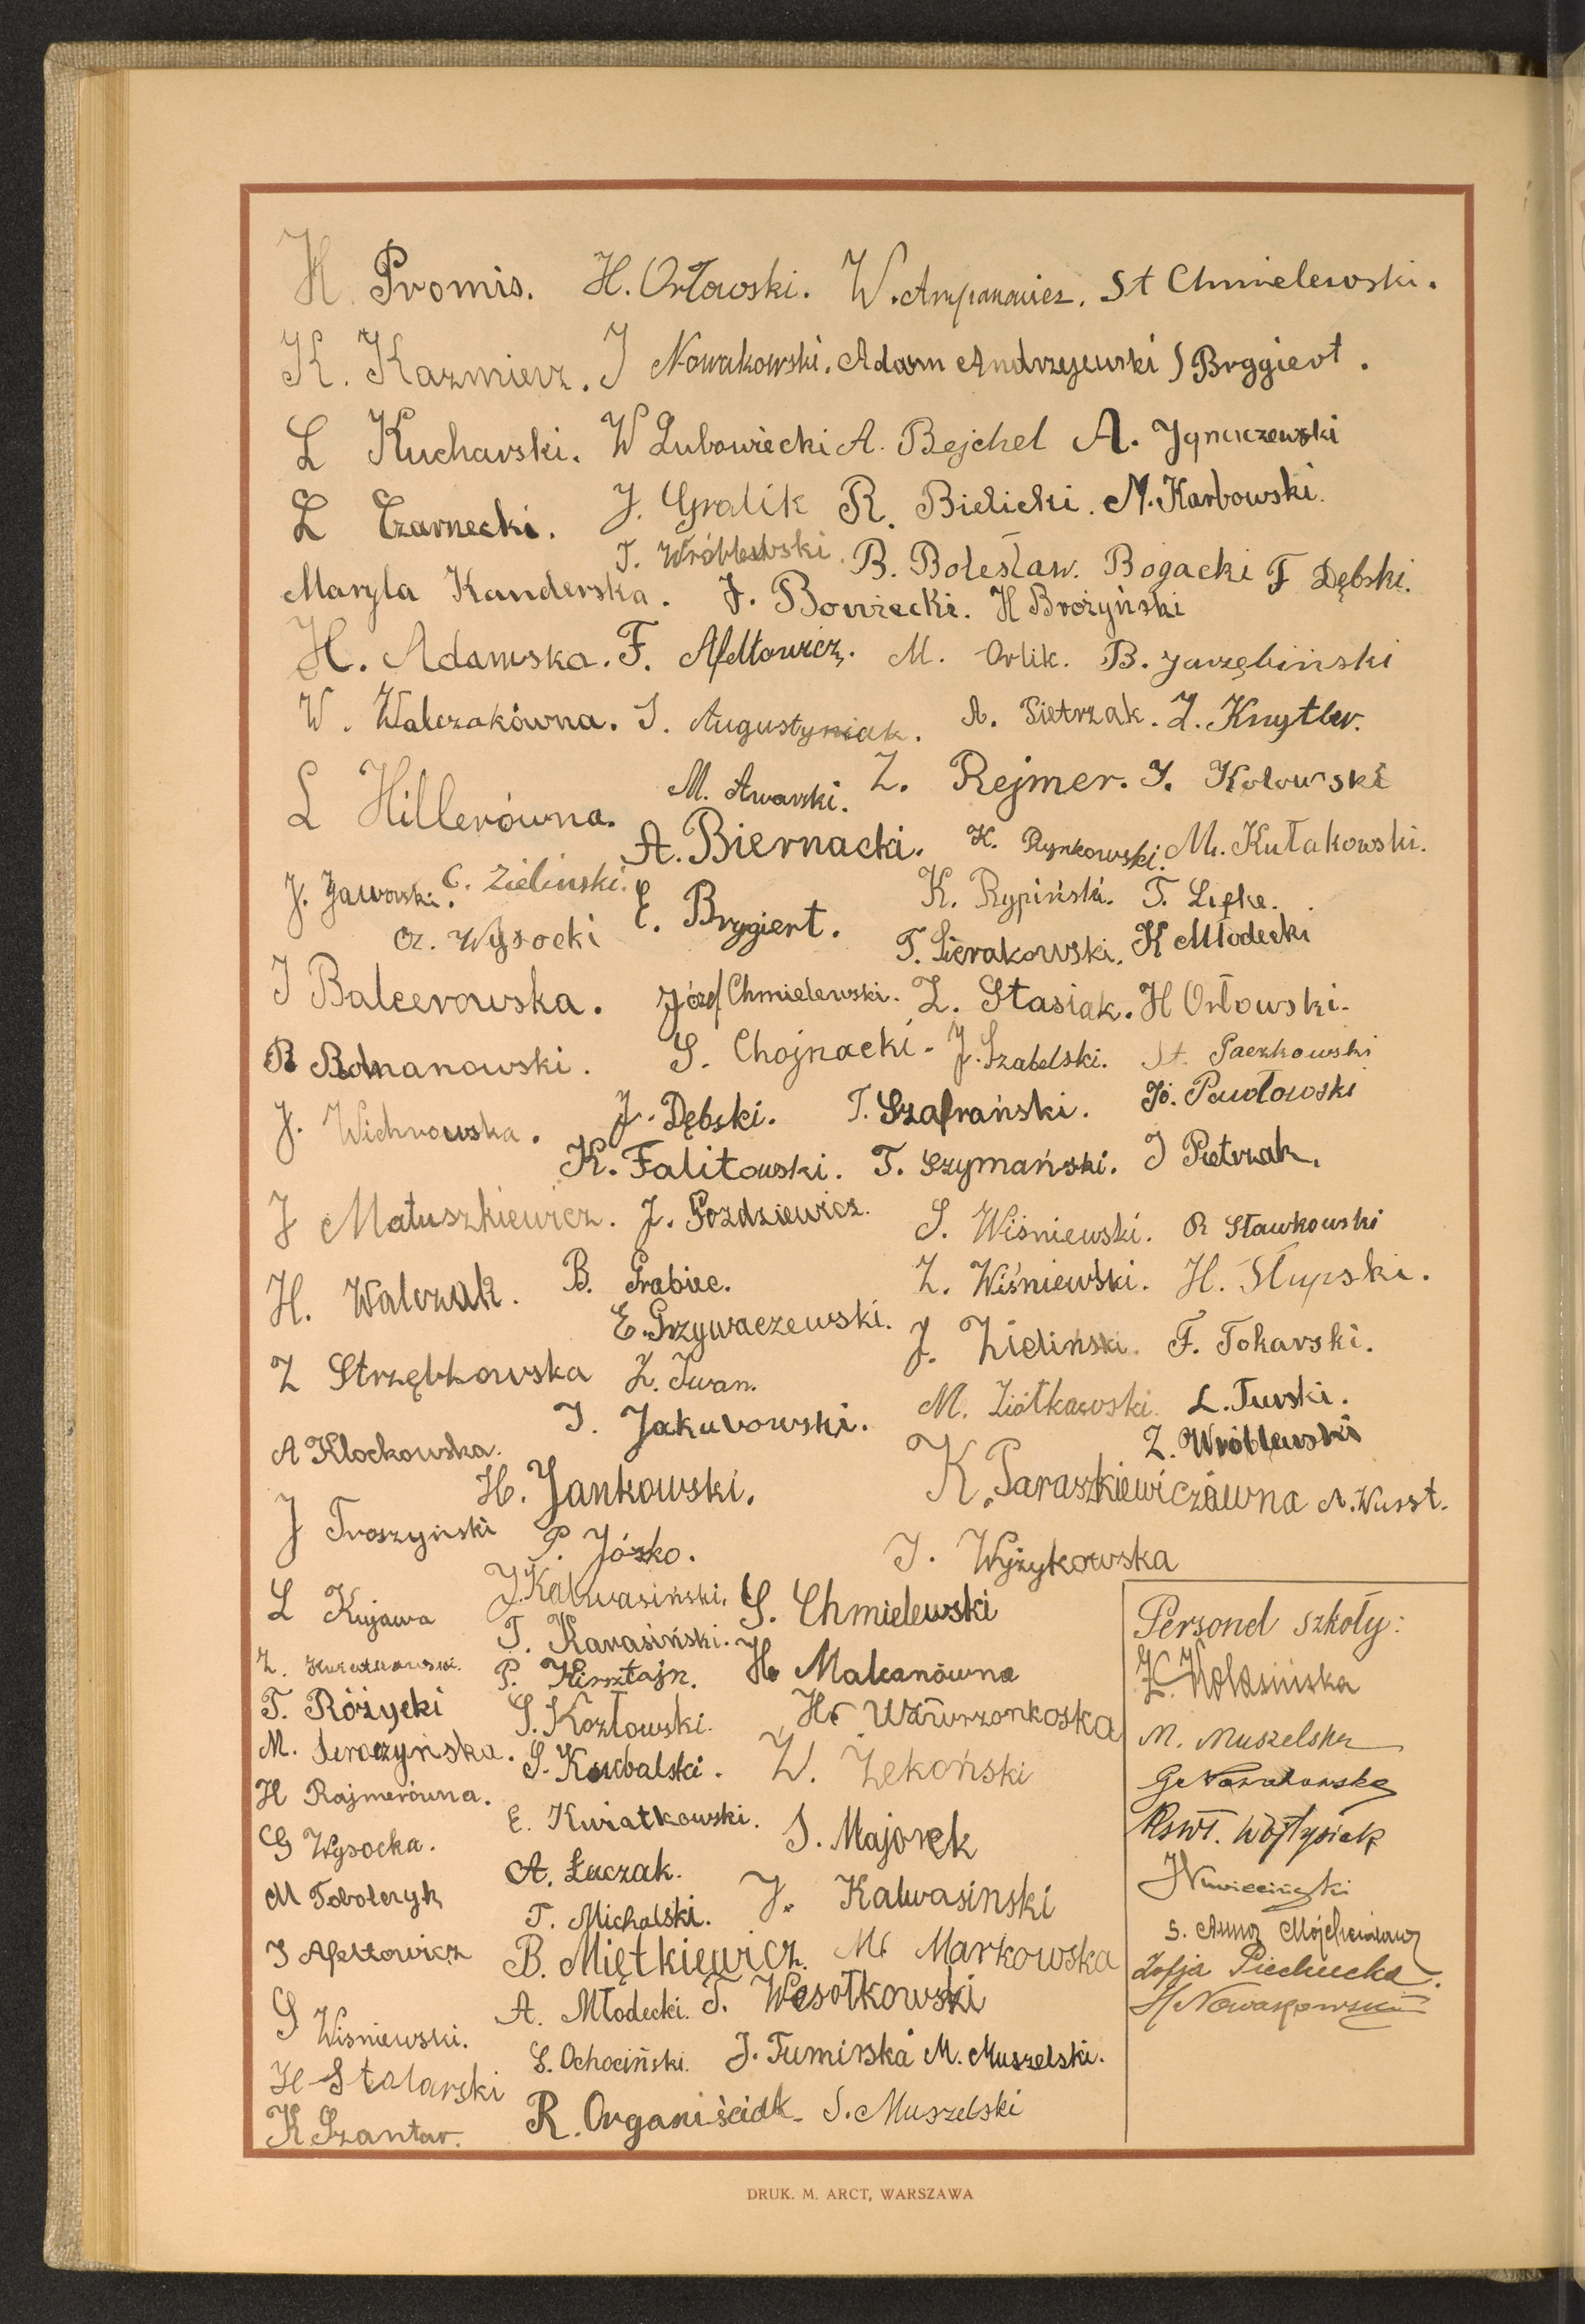 H. Promis. H. Orłowski. W. Ampanowicz. St Chmielewski.
K. Kazmierz. J Nowakowski. Adam Andrzejewski J Bryggiert.
L Kucharski. W Lubowiecki A. Bejchel A. Jgnaczewski
L Czarnecki. J. Gralik R. Bielicki. M. Karbowski.
T. Wróblewski. B. Bolesław. Bogacki F Dębski.
Maryla Kanderska. J. Bowiecki. K Brożyński
H. Adamska. F. Afeltowicz. M. Orlik. B. Jarzębiński
W. Walczakówna. J. Augustyniak. A. Pietrzak. Z. Knytler.
L Hillerówna. M. Awarski. Z. Rejmer. J. Kołowski
A. Biernacki. K. Rynkowski. M. Kułakowski.
J. Jaworski. C. Zieliński. E. Brygiert. K. Rypiński. T. Lipka.
Cz. Wysocki T. Sierakowski. K Młodecki
J Balcerowska. Józef Chmielewski. Z. Stasiak. H Orłowski.
R Romanowski. S. Chojnacki. J. Szabelski. St. Paczkowski
J. Wichrowska. J. Dębski. T. Szafrański. Jó. Pawłowski
K. Falitowski. T. Szymański. J Pietrzak.
J Matuszkiewicz. J. Pozdziewicz. S. Wiśniewski. R Sławkowski
H. Walczak. B. Grabiec. Z. Wiśniewski. H. Słupski.
E. Grzywaczewski. J. Zieliński. F. Tokarski.
Z Strzębkowska Z. Iwan. M. Ziółkowski. L. Turski.
A Klockowska. J. Jakubowski. Z. Wróblewski
H. Jankowski. K. Paraszkiewiczówna A. Wusst.
J Troszyński P. Józko. J. Wyżykowska
L Kujawa J. Kalwasiński. S. Chmielewski
T. Karasiński. H. Malcanówna
P. Hirsztajn.
T. Różycki S. Kozłowski.
M. Seroczyńska. S. Kowalski. W. Zekoński
H Rajmerówna. E. Kwiatkowski. S. Majorek
G Wysocka. A. Łuczak. J. Kalwasinski
M Tobolczyk T. Michalski.
J Afeltowicz B. Miętkiewicz. M. Markowska
S Wisniewski. A. Młodecki. T. Wesołkowski
H Stolarski S. Ochociński. J. Tumirska M. Muszelski.
K Szantar. R. Organiściak. S. Muszelski
Personel szkoły:
Z. Wolasińska
M. Muszelska
G. Nowakowska
Kswt. Wojtysiak
S. Anna
Zofja Piechucka.
H Nowakowski
DRUK. M. ARCT, WARSZAWA